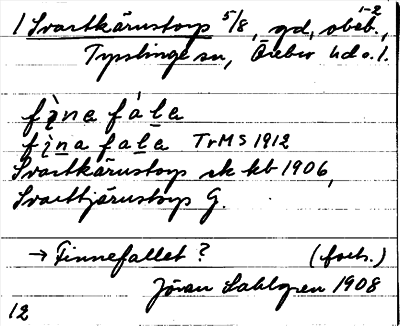 1 Svartkärnstorp 5/8, gd, obeb. 1-2,
Tysslinge sn, Örebro hd o. l.
fìna fála
fìna fala TrMS 1912
Svartkärnstorp sk kb 1906,
Svarttjärnstorp G.
→ Finnefallet? (forts.)
Jöran Sahlgren 1908
12